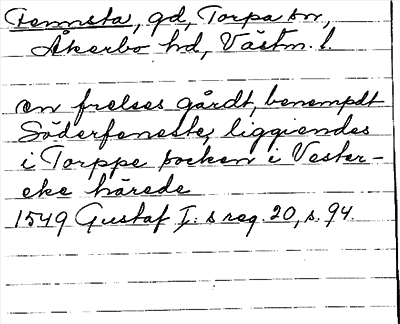 Femnsta, gd, Torpa sn,
Åkerbo hd, Västm. l.
en frelses gårdt, benempdt
Söderfeneste, liggiendes
i Torppe socken i Vester-
eke härede
1549 Gustaf I:s reg. 20, s. 94.